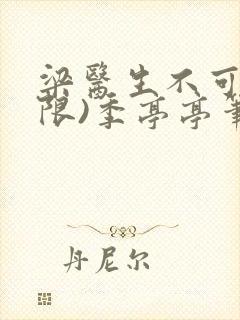 梁医生不可
限)季亭亭笔
丹尼尔